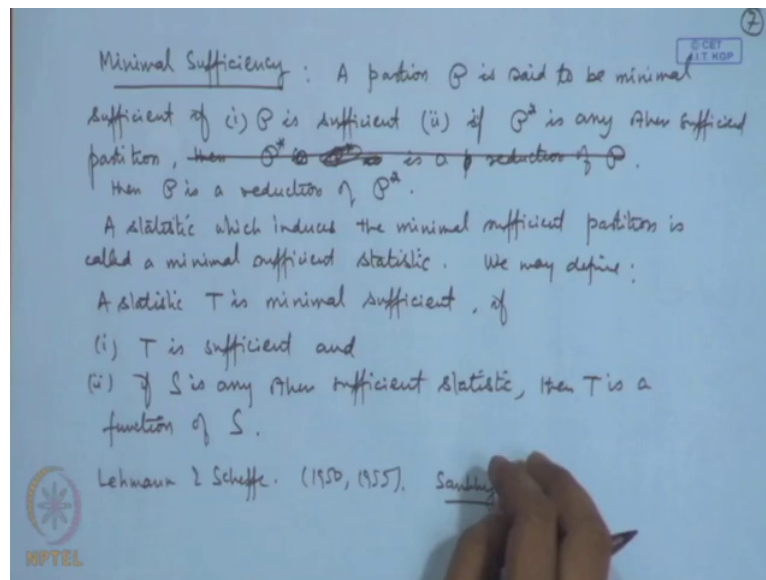 7
© CET
I.I.T. KGP
Minimal Sufficiency : A partion P is said to be minimal
sufficient if (i) P is sufficient (ii) if P* is any other sufficient
partition, then P* is a reduction of P.
then P is a reduction of P*.
A statistic which induces the minimal sufficient partition is
called a minimal sufficient statistic. We may define :
A statistic T is minimal sufficient, if
(i) T is sufficient and
(ii) if S is any other sufficient statistic, then T is a
function of S.
Lehmann & Scheffe. (1950, 1955). Sankhy
NPTEL